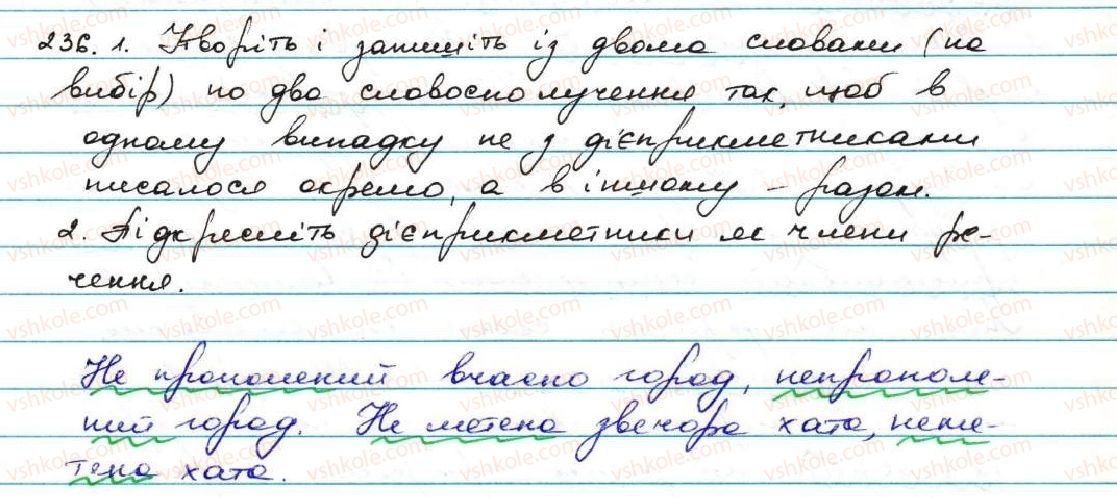 236. 1. Утворіть і запишіть із двома словами (на
вибір) по два словосполучення так, щоб в
одному випадку не з дієприкметниками
писалося окремо, а в іншому – разом.
2. Підкресліть дієприкметники як члени ре-
чення.
Не прополений вчасно город, непрополе-
ний город. Не метена звечора хата, неме-
тена хата.